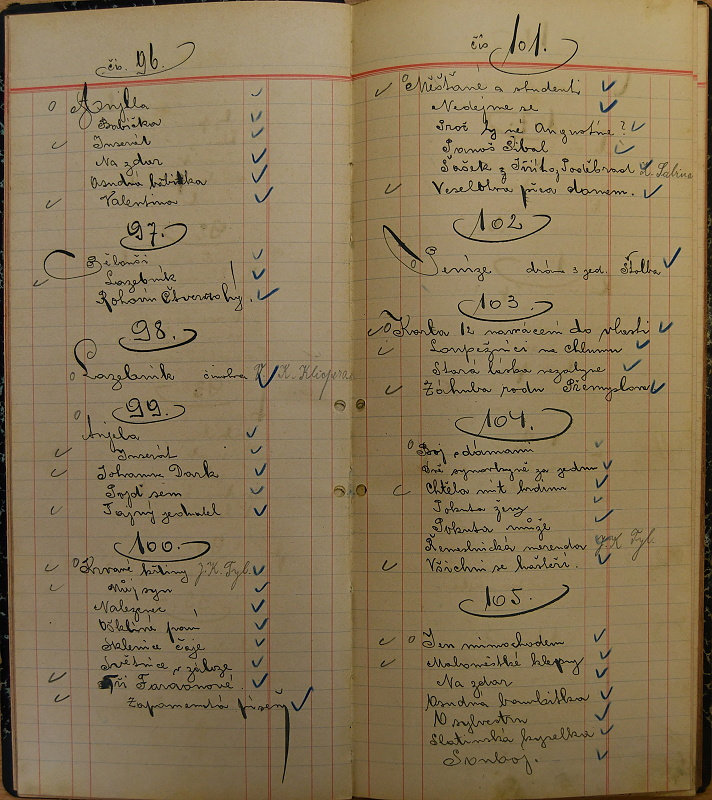 čís. 96.
Anjella
Babička
Inserát
Na zdar
Osudná bibitka
Valentina
97.
Bělouši
Lazebník
Rohovín Čtverrohý.
98.
Lazebník činohra V. K. Klicpera
99.
Anjela
Inserát
Johanna Dark
Pojď sem
Tajný jednatel
100.
Krvavé křtiny J. K. Tyl.
Můj syn
Nalezenec
Ošklivé paní
Sklenice čaje
Světnice v záloze
Tři Faraonové.
Zapomenutá píseň
čís 101.
Měšťané a studenti
Nedejme se
Proč ty né Augustine?
Panoš Šibal
Šašek z Jiřího Poděbrad K. Sabina
Veselohra před domem.
102
Peníze dráma 3 jed. Štolba
103
Karla 12 navrácení do vlasti
Loupežníci na Chlumu
Stará láska nezatyne
Záhuba rodu Přemyslova
104
Boj s dámami
Dvě synovkyně za jednu
Chtěla mít hrdinu
Pokuta ženy
Pokuta muže
Řemeslnická merenda J. K. Tyl.
Všichni se hašteří.
105.
Jen mimochodem
Maloměstské klepy
Na zdar
Osudná bambitka
O sylvestru
Slatinská kyselka
Souboj.